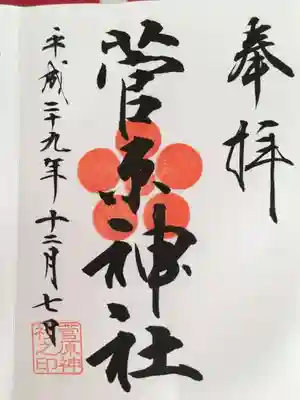 奉拝
菅原神社
平成二十九年十二月七日
菅原神
社之印